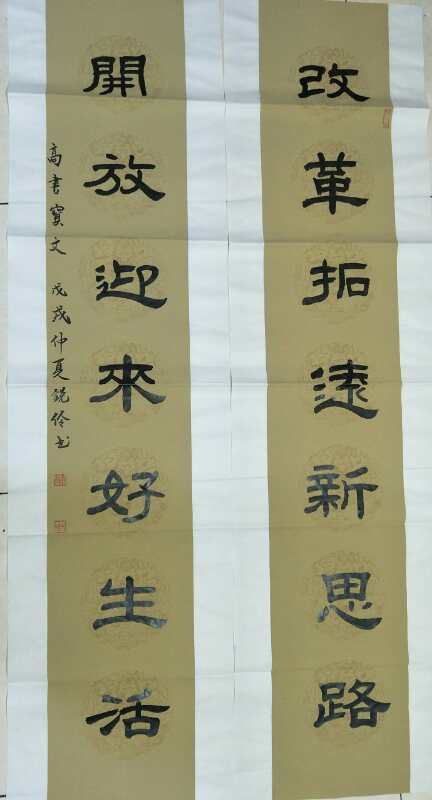 改革拓遠新思路
開放迎來好生活
高書寶文 戊戌仲夏 銳伶书